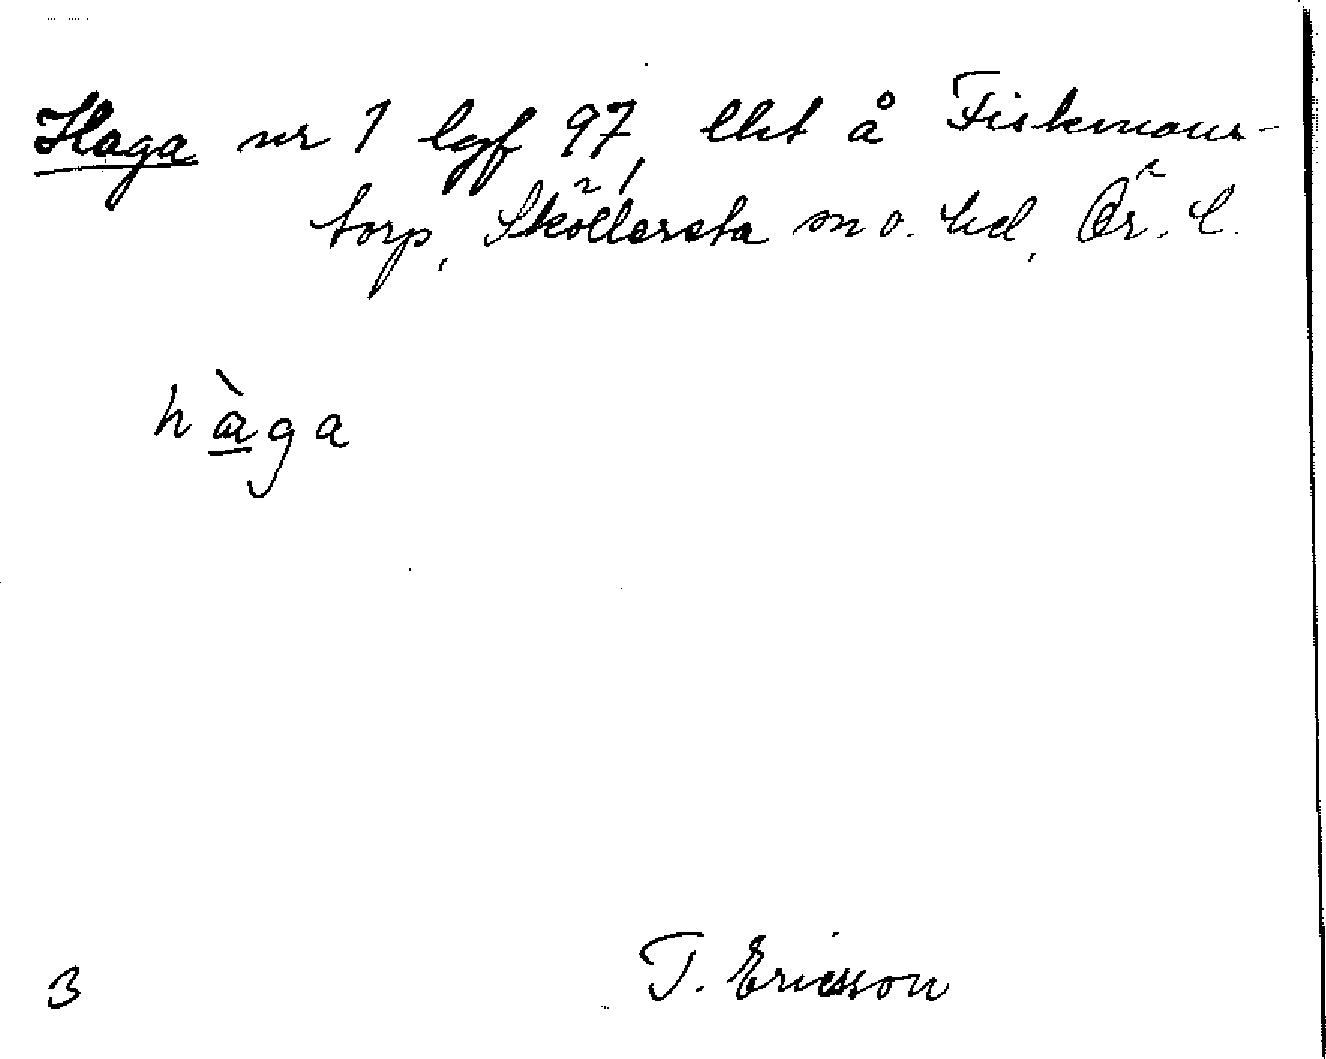 Haga nr 1 lgf 97, lht å Fiskmans-
torp, Sköllersta sn o. hd, Ör. l.
hàga
3 T. Ericsson